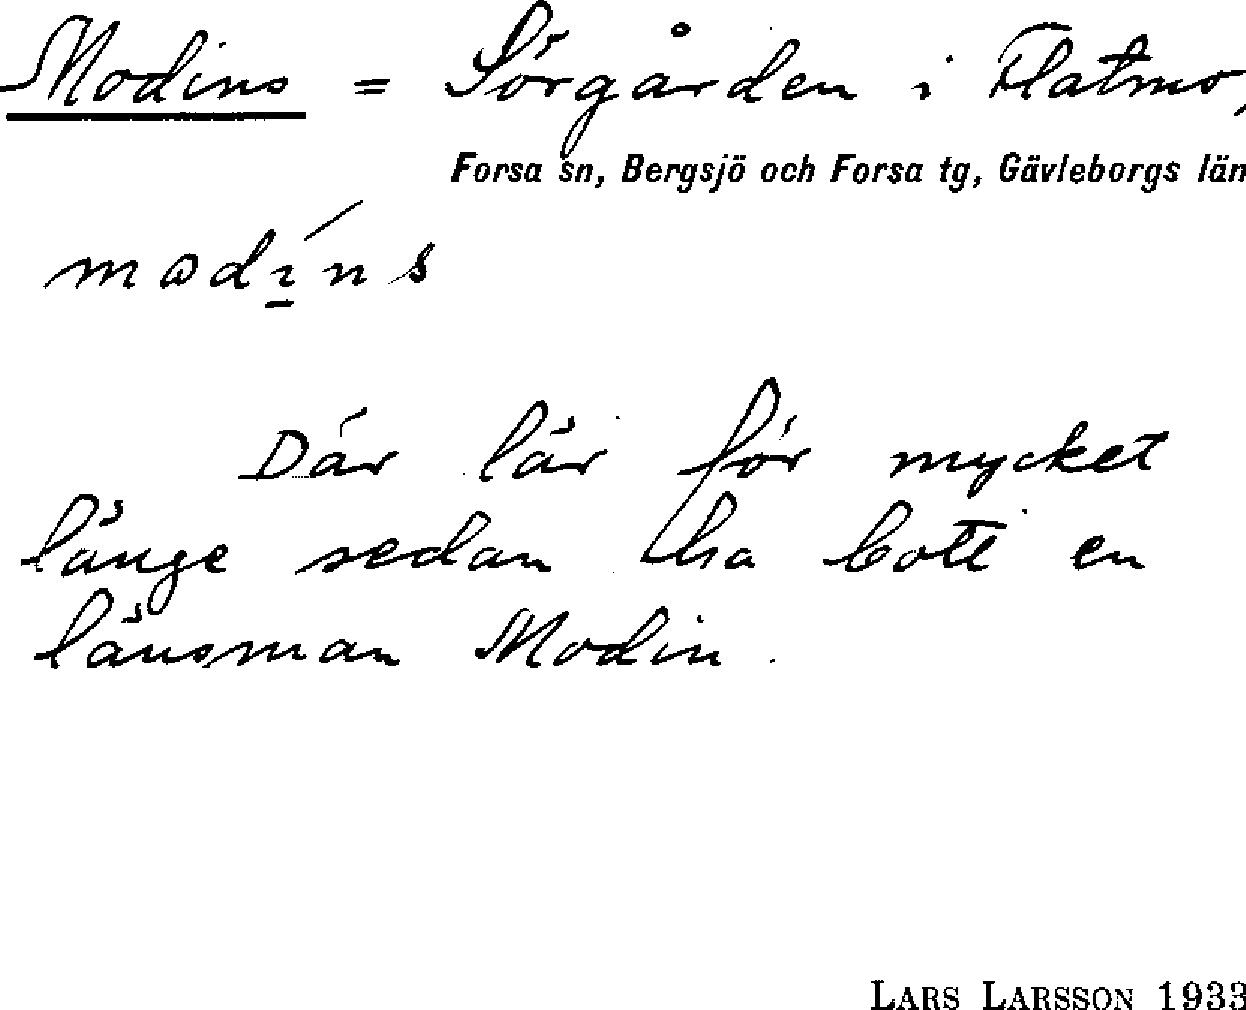 Modins = Sörgården i Flatmo,
Forsa sn, Bergsjö och Forsa tg, Gävleborgs län
modí̱ns
Där lär för mycket
länge sedan ha bott en
länsman Modin.
LARS LARSSON 1933